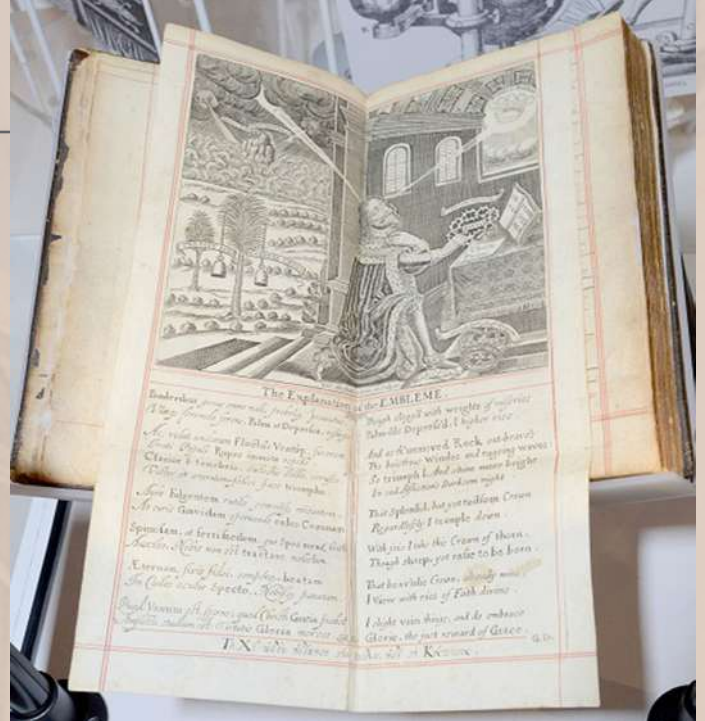 The Explanation of the EMBLEME.
Ponderibus genus omne mali, probriq gravatus,
Vixq ferenda ferens, Palma ut Depressa, resurgo.
Ac, velut undarum Fluctus Ventiq; furorem
Irati Populi Rupes immota repello.
Clarior è tenebris,
Victor et æternum felici pace triumpho.
Auro Fulgentem rutilo gemmisq micantem,
At curis Gravidam spernendo calco Coronam.
Spinosam, at ferri facilem, quo Spes mea,
Auxilio, Nobis non est tractare molestum.
Æternam, fixis fidei, semperq beatam
In Cœlos oculis Specto, Nobisq paratam.
Quod Vanum est, sperno; quod Christi Gratia præbet
Amplecti studium est: Virtutis Gloria merces
Though clogg'd with weights of miseries
Palm-like Depress'd, I higher rise.
And as th'unmoved Rock out-brave's
The boist'rous Windes and rageing waves:
So triumph I. And shine more bright
In sad Affliction's Darksom night.
That Splendid, but yet toilsom Crown
Regardlessly I trample down.
With joie I take this Crown of thorn,
Though sharp, yet easie to be born.
That heav'nlie Crown, already mine,
I View with eies of Faith divine.
I slight vain things; and do embrace
Glorie, the just reward of Grace. G.D.